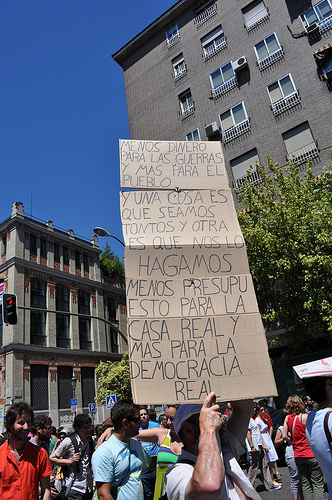 MENOS DINERO
PARA LAS GUERRAS
Y MAS PARA EL
PUEBLO
Y UNA COSA ES
QUE SEAMOS
TONTOS Y OTRA
ES QUE NOS LO
HAGAMOS
MENOS PRESUPU
ESTO PARA LA
CASA REAL Y
MAS PARA LA
DEMOCRACIA
REAL